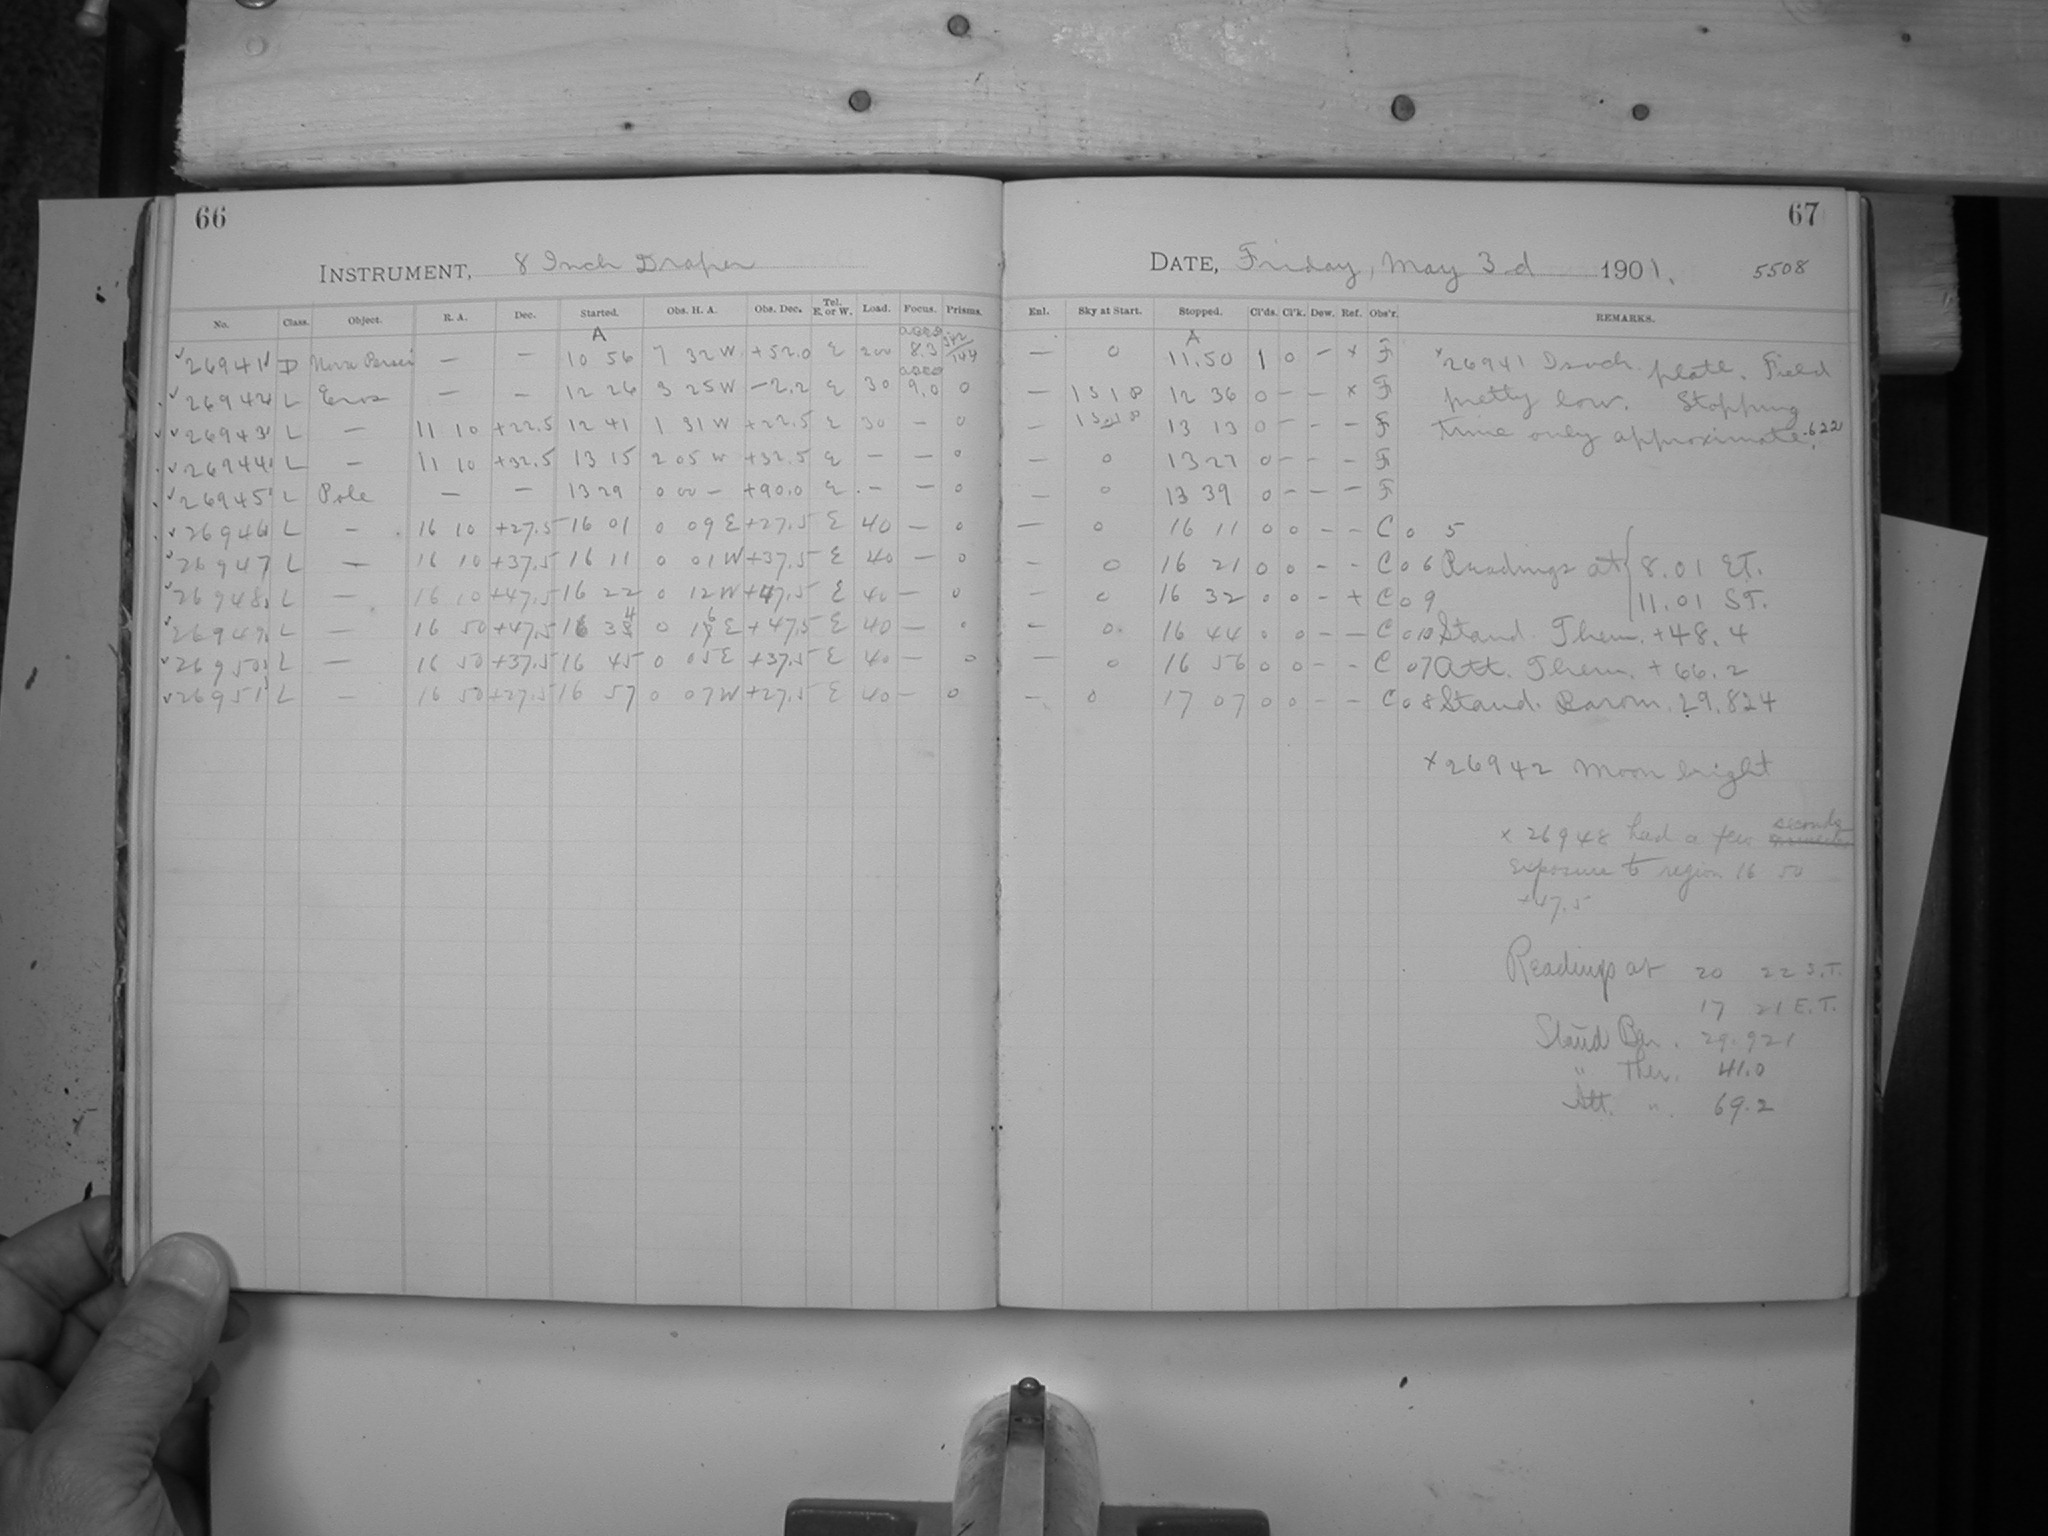 66
INSTRUMENT, 8 Inch Draper
No. Class. Object. R. A. Dec. Started. Obs. H. A. Obs. Dec. Tel. E. or W. Load. Focus. Prisms.
A
26941 D Nova Persei — — 10 56 7 32 W +52.0 E 200 8.3
26942 L Eros — — 12 26 3 25 W −2.2 E 30 9.0 0
26943 L — 11 10 +22.5 12 41 1 31 W +22.5 E 30 — 0
26944 L — 11 10 +32.5 13 15 2 05 W +32.5 E — — 0
26945 L Pole — — 13 29 0 00 — +90.0 E — — 0
26946 L — 16 10 +27.5 16 01 0 09 E +27.5 E 40 — 0
26947 L — 16 10 +37.5 16 11 0 01 W +37.5 E 40 — 0
26948 L — 16 10 +47.5 16 22 0 12 W +47.5 E 40 — 0
26949 L — 16 50 +47.5 16 34 0 16 E +47.5 E 40 — 0
26950 L — 16 50 +37.5 16 45 0 05 E +37.5 E 40 — 0
26951 L — 16 50 +27.5 16 57 0 07 W +27.5 E 40 — 0
67
DATE, Friday, May 3d 1901. 5508
Enl. Sky at Start. Stopped. Cl'ds. Cl'k. Dew. Ref. Obs'r. REMARKS.
A
— 0 11.50 1 0 — x F x26941 plate. Field
— 1318 12 36 0 — — x F pretty low. Stopping
— 13 13 0 — — — F time only approximate. .622
— 0 13 27 0 — — — F
— 0 13 39 0 — — — F
— 0 16 11 0 0 — — C 0 5
— 0 16 21 0 0 — — C 0 6 Readings at 8.01 ET.
— 0 16 32 0 0 — + C 0 9 11.01 ST.
— 0 16 44 0 0 — — C 0 10 Stand. Therm. +48.4
— 0 16 56 0 0 — — C 0 7 Att. Therm. +66.2
— 0 17 07 0 0 — — C 0 8 Stand. Barom. 29.824
x26942 Moon bright
x 26948 had a few seconds
exposure to region 16 50
+47.5
Readings at 20 22 S.T.
17 21 E.T.
Stand Bar. 29.921
" Ther. 41.0
Att. " 69.2